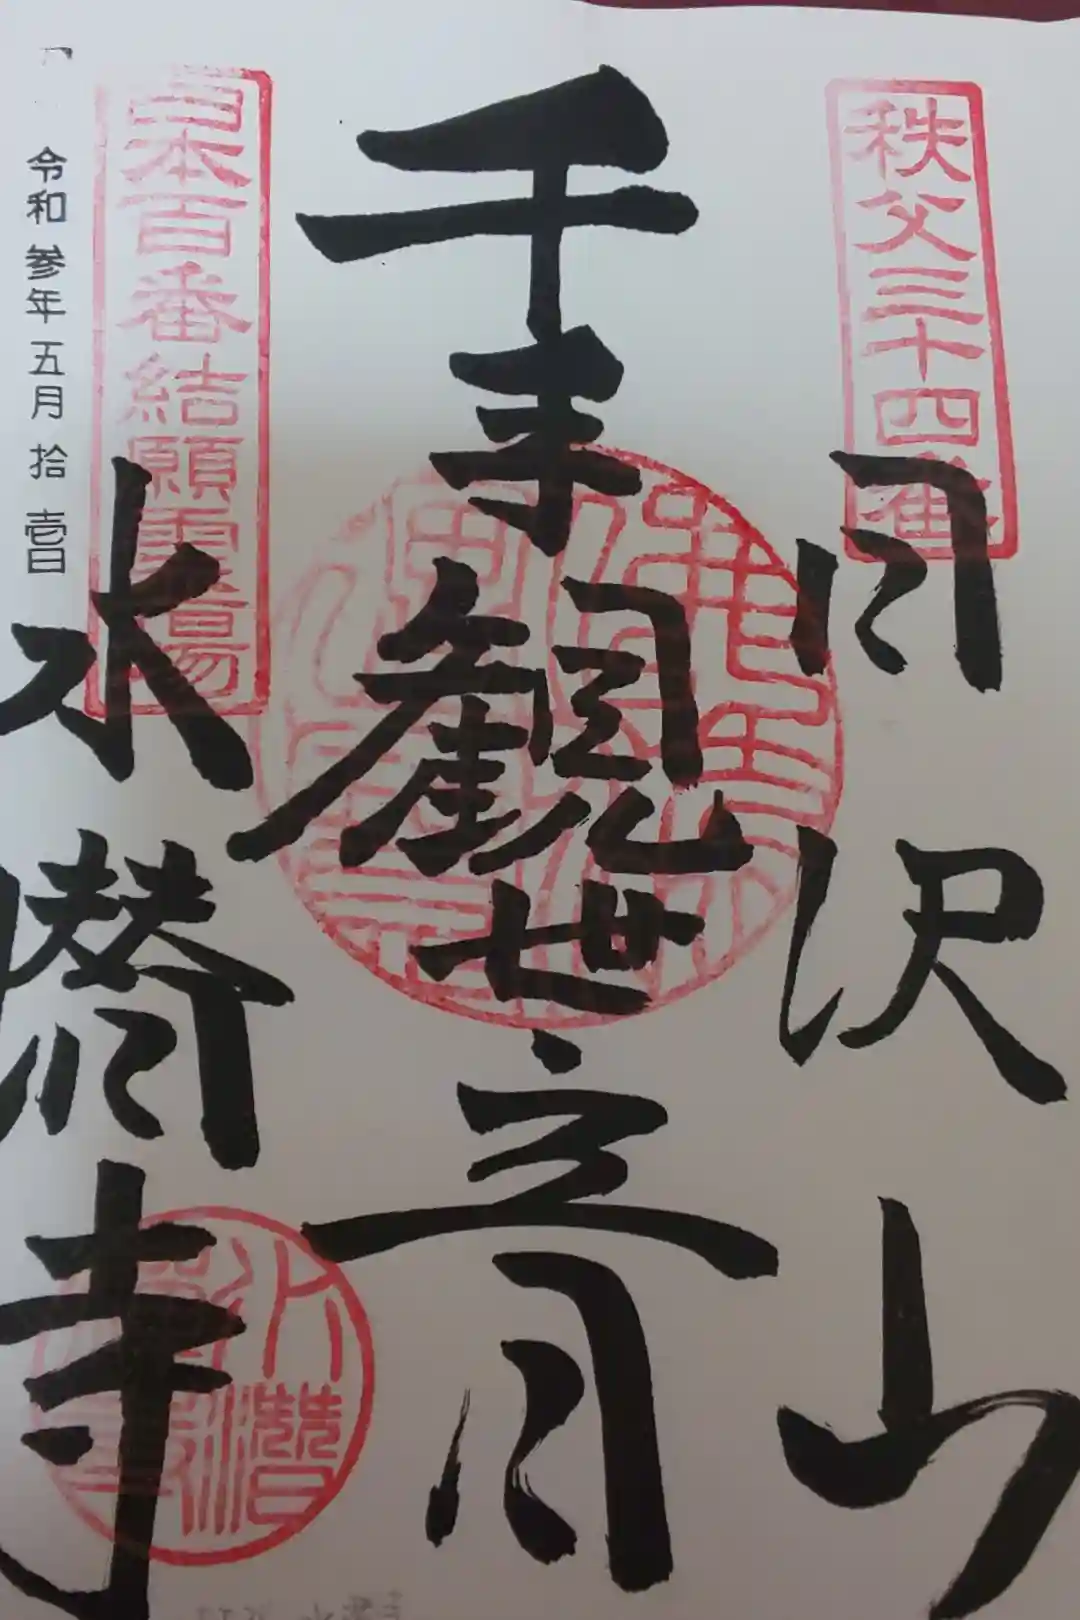 秩父三十四番
日沢山
千手観世音
日本百番結願霊場
水潜寺
令和参年五月拾壱日